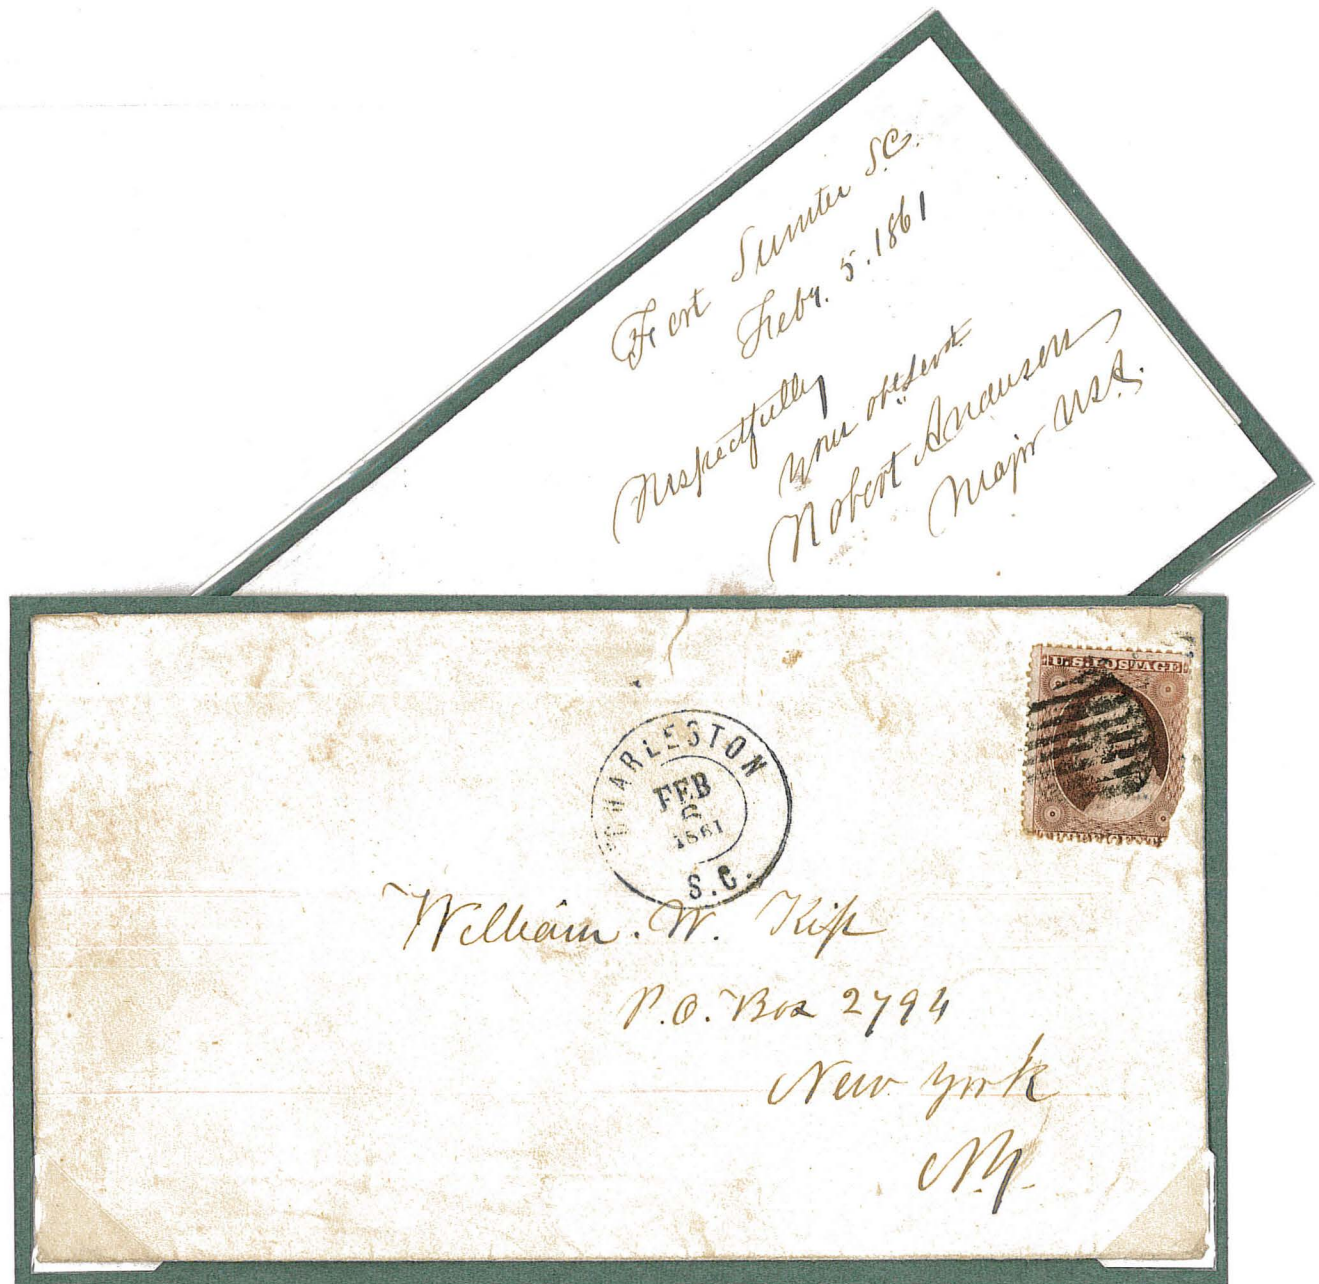 Fort Sumter S.C.
Feby. 5. 1861
Respectfully
your obt. servt.
Robert Anderson
Major U.S.A.
U.S. POSTAGE
CHARLESTON
FEB
6
1861
S.C.
William. W. Kip
P.O. Box 2794
New York
N.Y.